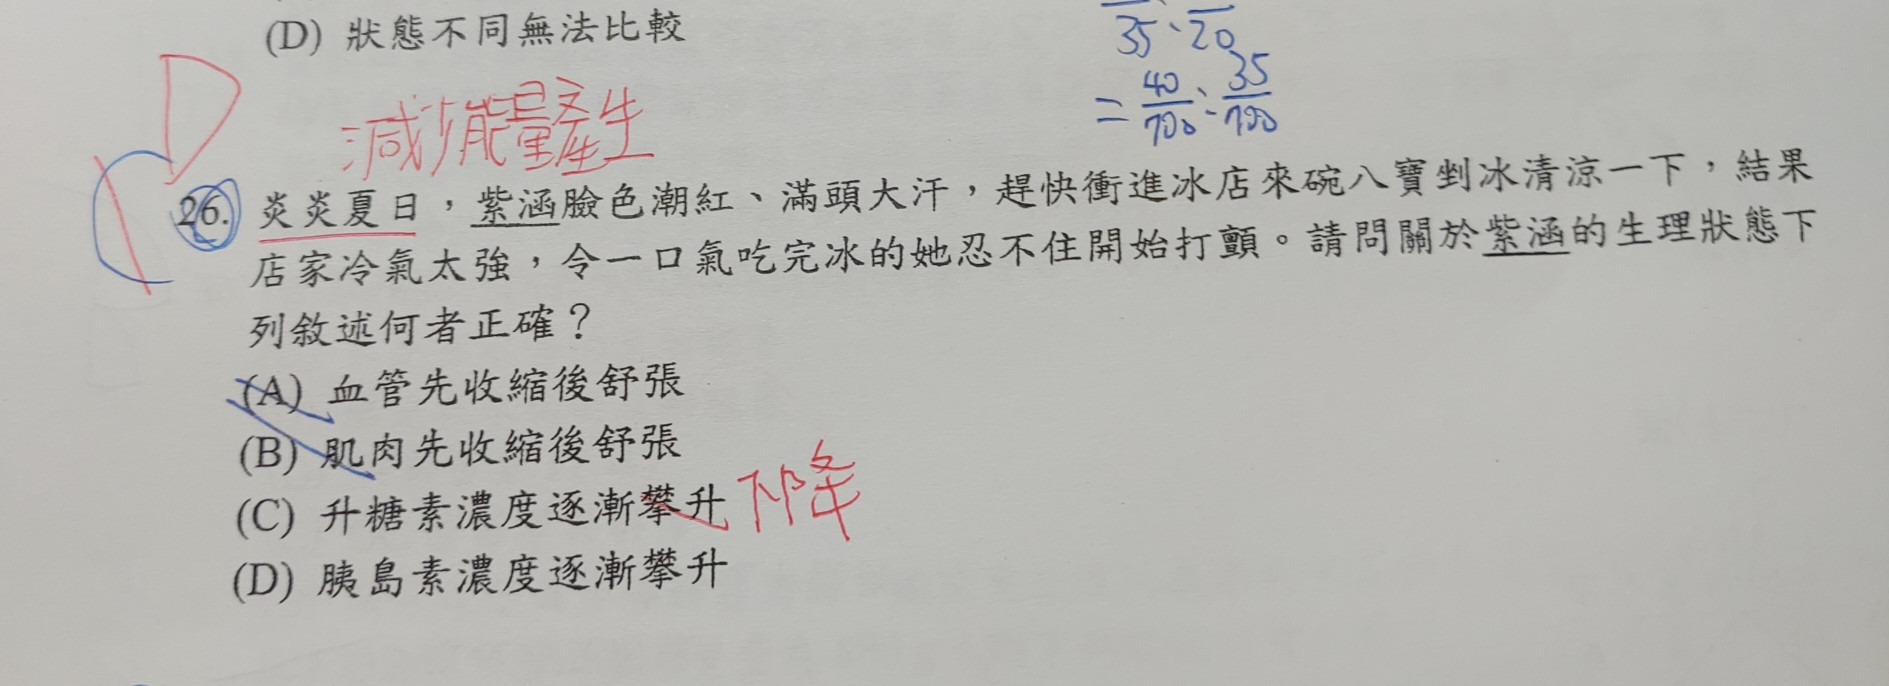 (D) 狀態不同無法比較
35 : 20
= 40/700 : 35/700
D
減少能量產生
C
26. 炎炎夏日，紫涵臉色潮紅、滿頭大汗，趕快衝進冰店來碗八寶剉冰清涼一下，結果
店家冷氣太強，令一口氣吃完冰的她忍不住開始打顫。請問關於紫涵的生理狀態下
列敘述何者正確？
(A) 血管先收縮後舒張
(B) 肌肉先收縮後舒張
(C) 升糖素濃度逐漸攀升 下降
(D) 胰島素濃度逐漸攀升